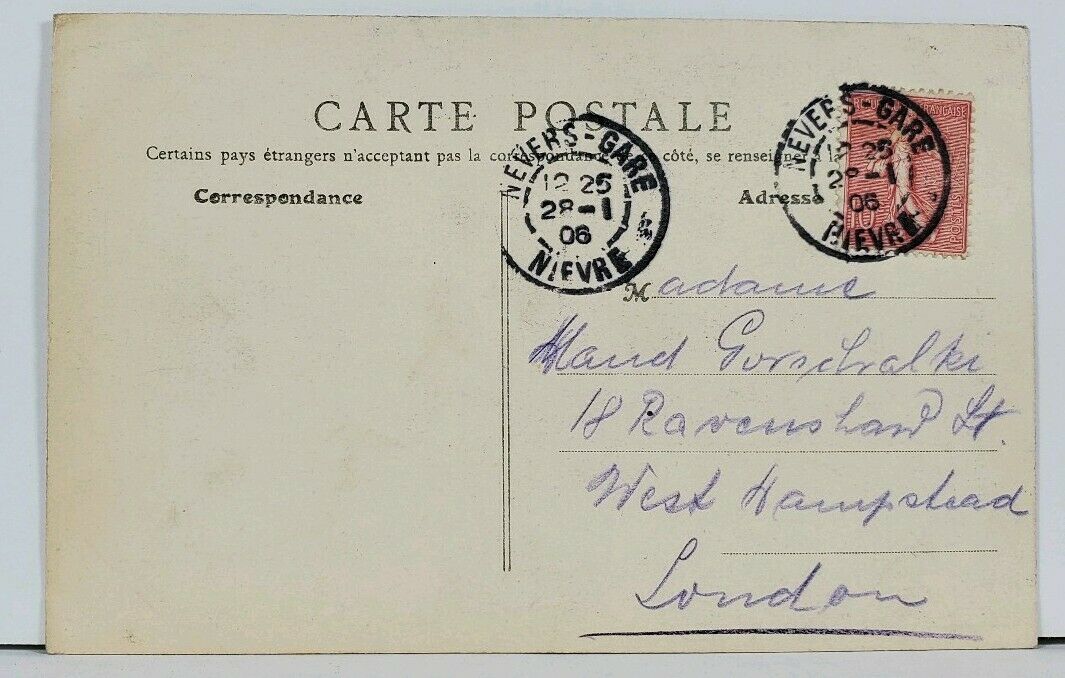 CARTE POSTALE
Certains pays étrangers n'acceptent pas la correspondance côté, se renseigner à la
Correspondance
Adresse
NEVERS-GARE
12 25
28-1
06
NIEVRE
NEVERS-GARE
12 25
28-1
06
NIEVRE
FRANÇAISE
POSTES
10
Madame
Maud
18 St.
West Hampstead
London